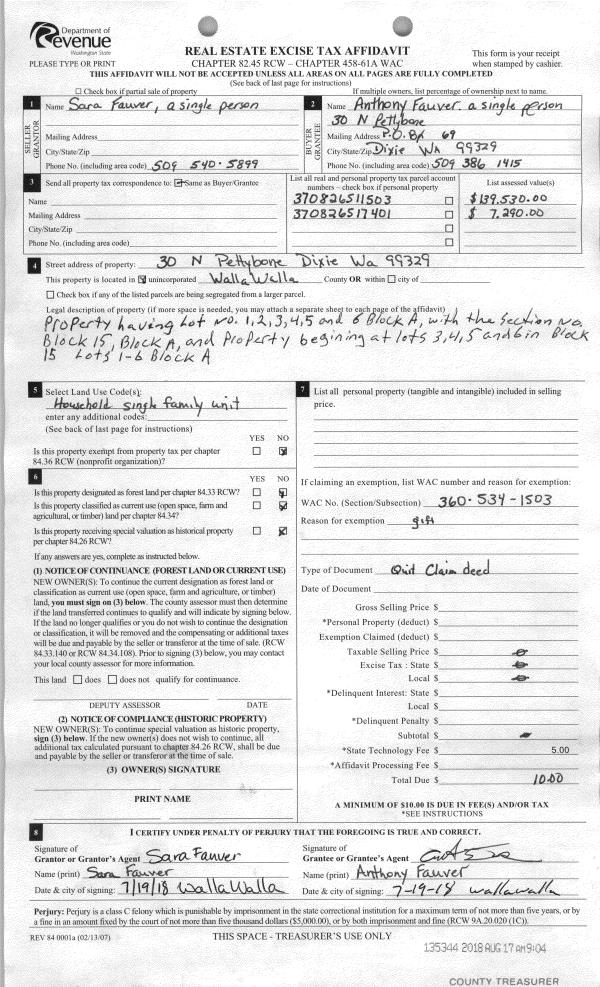 Department of
Revenue
Washington State
PLEASE TYPE OR PRINT
REAL ESTATE EXCISE TAX AFFIDAVIT
CHAPTER 82.45 RCW – CHAPTER 458-61A WAC
This form is your receipt
when stamped by cashier.
THIS AFFIDAVIT WILL NOT BE ACCEPTED UNLESS ALL AREAS ON ALL PAGES ARE FULLY COMPLETED
(See back of last page for instructions)
Check box if partial sale of property
If multiple owners, list percentage of ownership next to name.
1
SELLER
GRANTOR
Name Sara Fauver, a single person
Mailing Address
City/State/Zip
Phone No. (including area code) 509 540-5899
2
BUYER
GRANTEE
Name Anthony Fauver. a single person
30 N Pettybone
Mailing Address P.O. Bx 69
City/State/Zip Dixie WA 99329
Phone No. (including area code) 509 386 1415
3
Send all property tax correspondence to: Same as Buyer/Grantee
Name
Mailing Address
City/State/Zip
Phone No. (including area code)
List all real and personal property tax parcel account
numbers – check box if personal property
370826511503
370826517401
List assessed value(s)
$139,530.00
$ 7,290.00
4
Street address of property: 30 N Pettybone Dixie Wa 99329
This property is located in unincorporated Walla Walla County OR within city of
Check box if any of the listed parcels are being segregated from a larger parcel.
Legal description of property (if more space is needed, you may attach a separate sheet to each page of the affidavit)
Property having Lot No. 1,2,3,4,5 and 6 Block A, with the section no.
Block 15, Block A, and Property begining at lots 3,4,5 and 6 in Block
15 Lots 1-6 Block A
5
Select Land Use Code(s):
Household single family unit
enter any additional codes:
(See back of last page for instructions)
YES NO
Is this property exempt from property tax per chapter
84.36 RCW (nonprofit organization)?
6
YES NO
Is this property designated as forest land per chapter 84.33 RCW?
Is this property classified as current use (open space, farm and
agricultural, or timber) land per chapter 84.34?
Is this property receiving special valuation as historical property
per chapter 84.26 RCW?
If any answers are yes, complete as instructed below.
(1) NOTICE OF CONTINUANCE (FOREST LAND OR CURRENT USE)
NEW OWNER(S): To continue the current designation as forest land or
classification as current use (open space, farm and agriculture, or timber)
land, you must sign on (3) below. The county assessor must then determine
if the land transferred continues to qualify and will indicate by signing below.
If the land no longer qualifies or you do not wish to continue the designation
or classification, it will be removed and the compensating or additional taxes
will be due and payable by the seller or transferor at the time of sale. (RCW
84.33.140 or RCW 84.34.108). Prior to signing (3) below, you may contact
your local county assessor for more information.
This land does does not qualify for continuance.
DEPUTY ASSESSOR DATE
(2) NOTICE OF COMPLIANCE (HISTORIC PROPERTY)
NEW OWNER(S): To continue special valuation as historic property,
sign (3) below. If the new owner(s) does not wish to continue, all
additional tax calculated pursuant to chapter 84.26 RCW, shall be due
and payable by the seller or transferor at the time of sale.
(3) OWNER(S) SIGNATURE
PRINT NAME
7
List all personal property (tangible and intangible) included in selling
price.
If claiming an exemption, list WAC number and reason for exemption:
WAC No. (Section/Subsection) 360-534-1503
Reason for exemption gift
Type of Document Quit Claim deed
Date of Document
Gross Selling Price $
*Personal Property (deduct) $
Exemption Claimed (deduct) $
Taxable Selling Price $
Excise Tax : State $
Local $
*Delinquent Interest: State $
Local $
*Delinquent Penalty $
Subtotal $
*State Technology Fee $ 5.00
*Affidavit Processing Fee $
Total Due $ 10.00
A MINIMUM OF $10.00 IS DUE IN FEE(S) AND/OR TAX
*SEE INSTRUCTIONS
8
I CERTIFY UNDER PENALTY OF PERJURY THAT THE FOREGOING IS TRUE AND CORRECT.
Signature of
Grantor or Grantor's Agent Sara Fauver
Name (print) Sara Fauver
Date & city of signing: 7/19/18 Walla Walla
Signature of
Grantee or Grantee's Agent
Name (print) Anthony Fauver
Date & city of signing: 7-19-18 wallawalla
Perjury: Perjury is a class C felony which is punishable by imprisonment in the state correctional institution for a maximum term of not more than five years, or by
a fine in an amount fixed by the court of not more than five thousand dollars ($5,000.00), or by both imprisonment and fine (RCW 9A.20.020 (1C)).
REV 84 0001a (02/13/07)
THIS SPACE - TREASURER'S USE ONLY
135344 2018 AUG 17 AM 9:04
COUNTY TREASURER